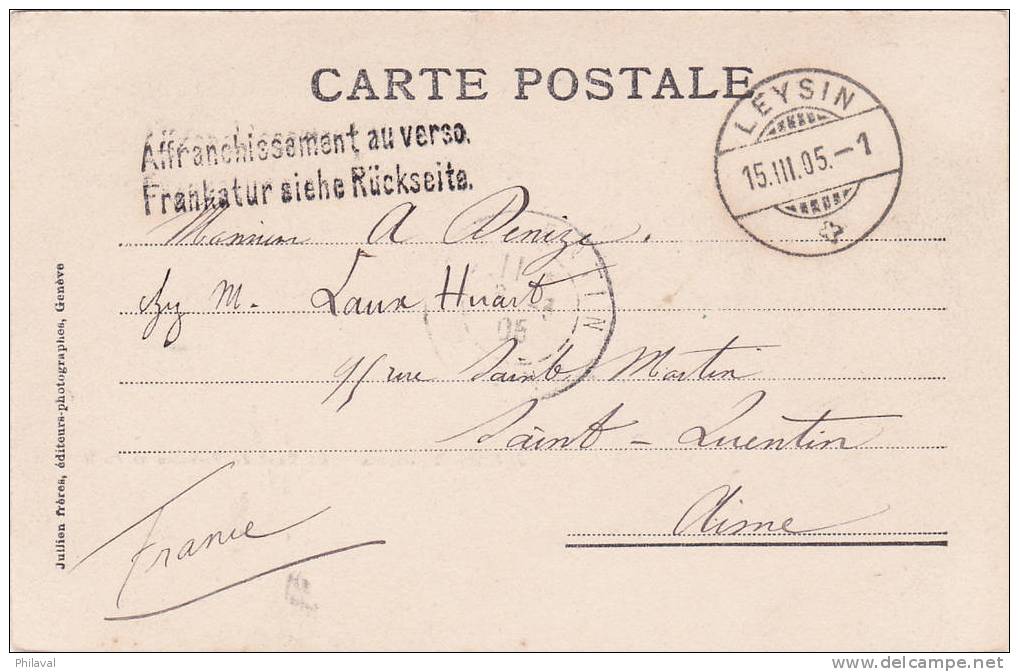 CARTE POSTALE
LEYSIN
15.III.05.-1
Affranchissement au verso.
Frankatur siehe Rückseite.
A Denize.
M. Laux Huart
rue Saint Martin
Saint-Quentin
Aisne
France
TIN
11
05
Jullien frères, éditeurs-photographes, Genève
Philaval
www.delcampe.net